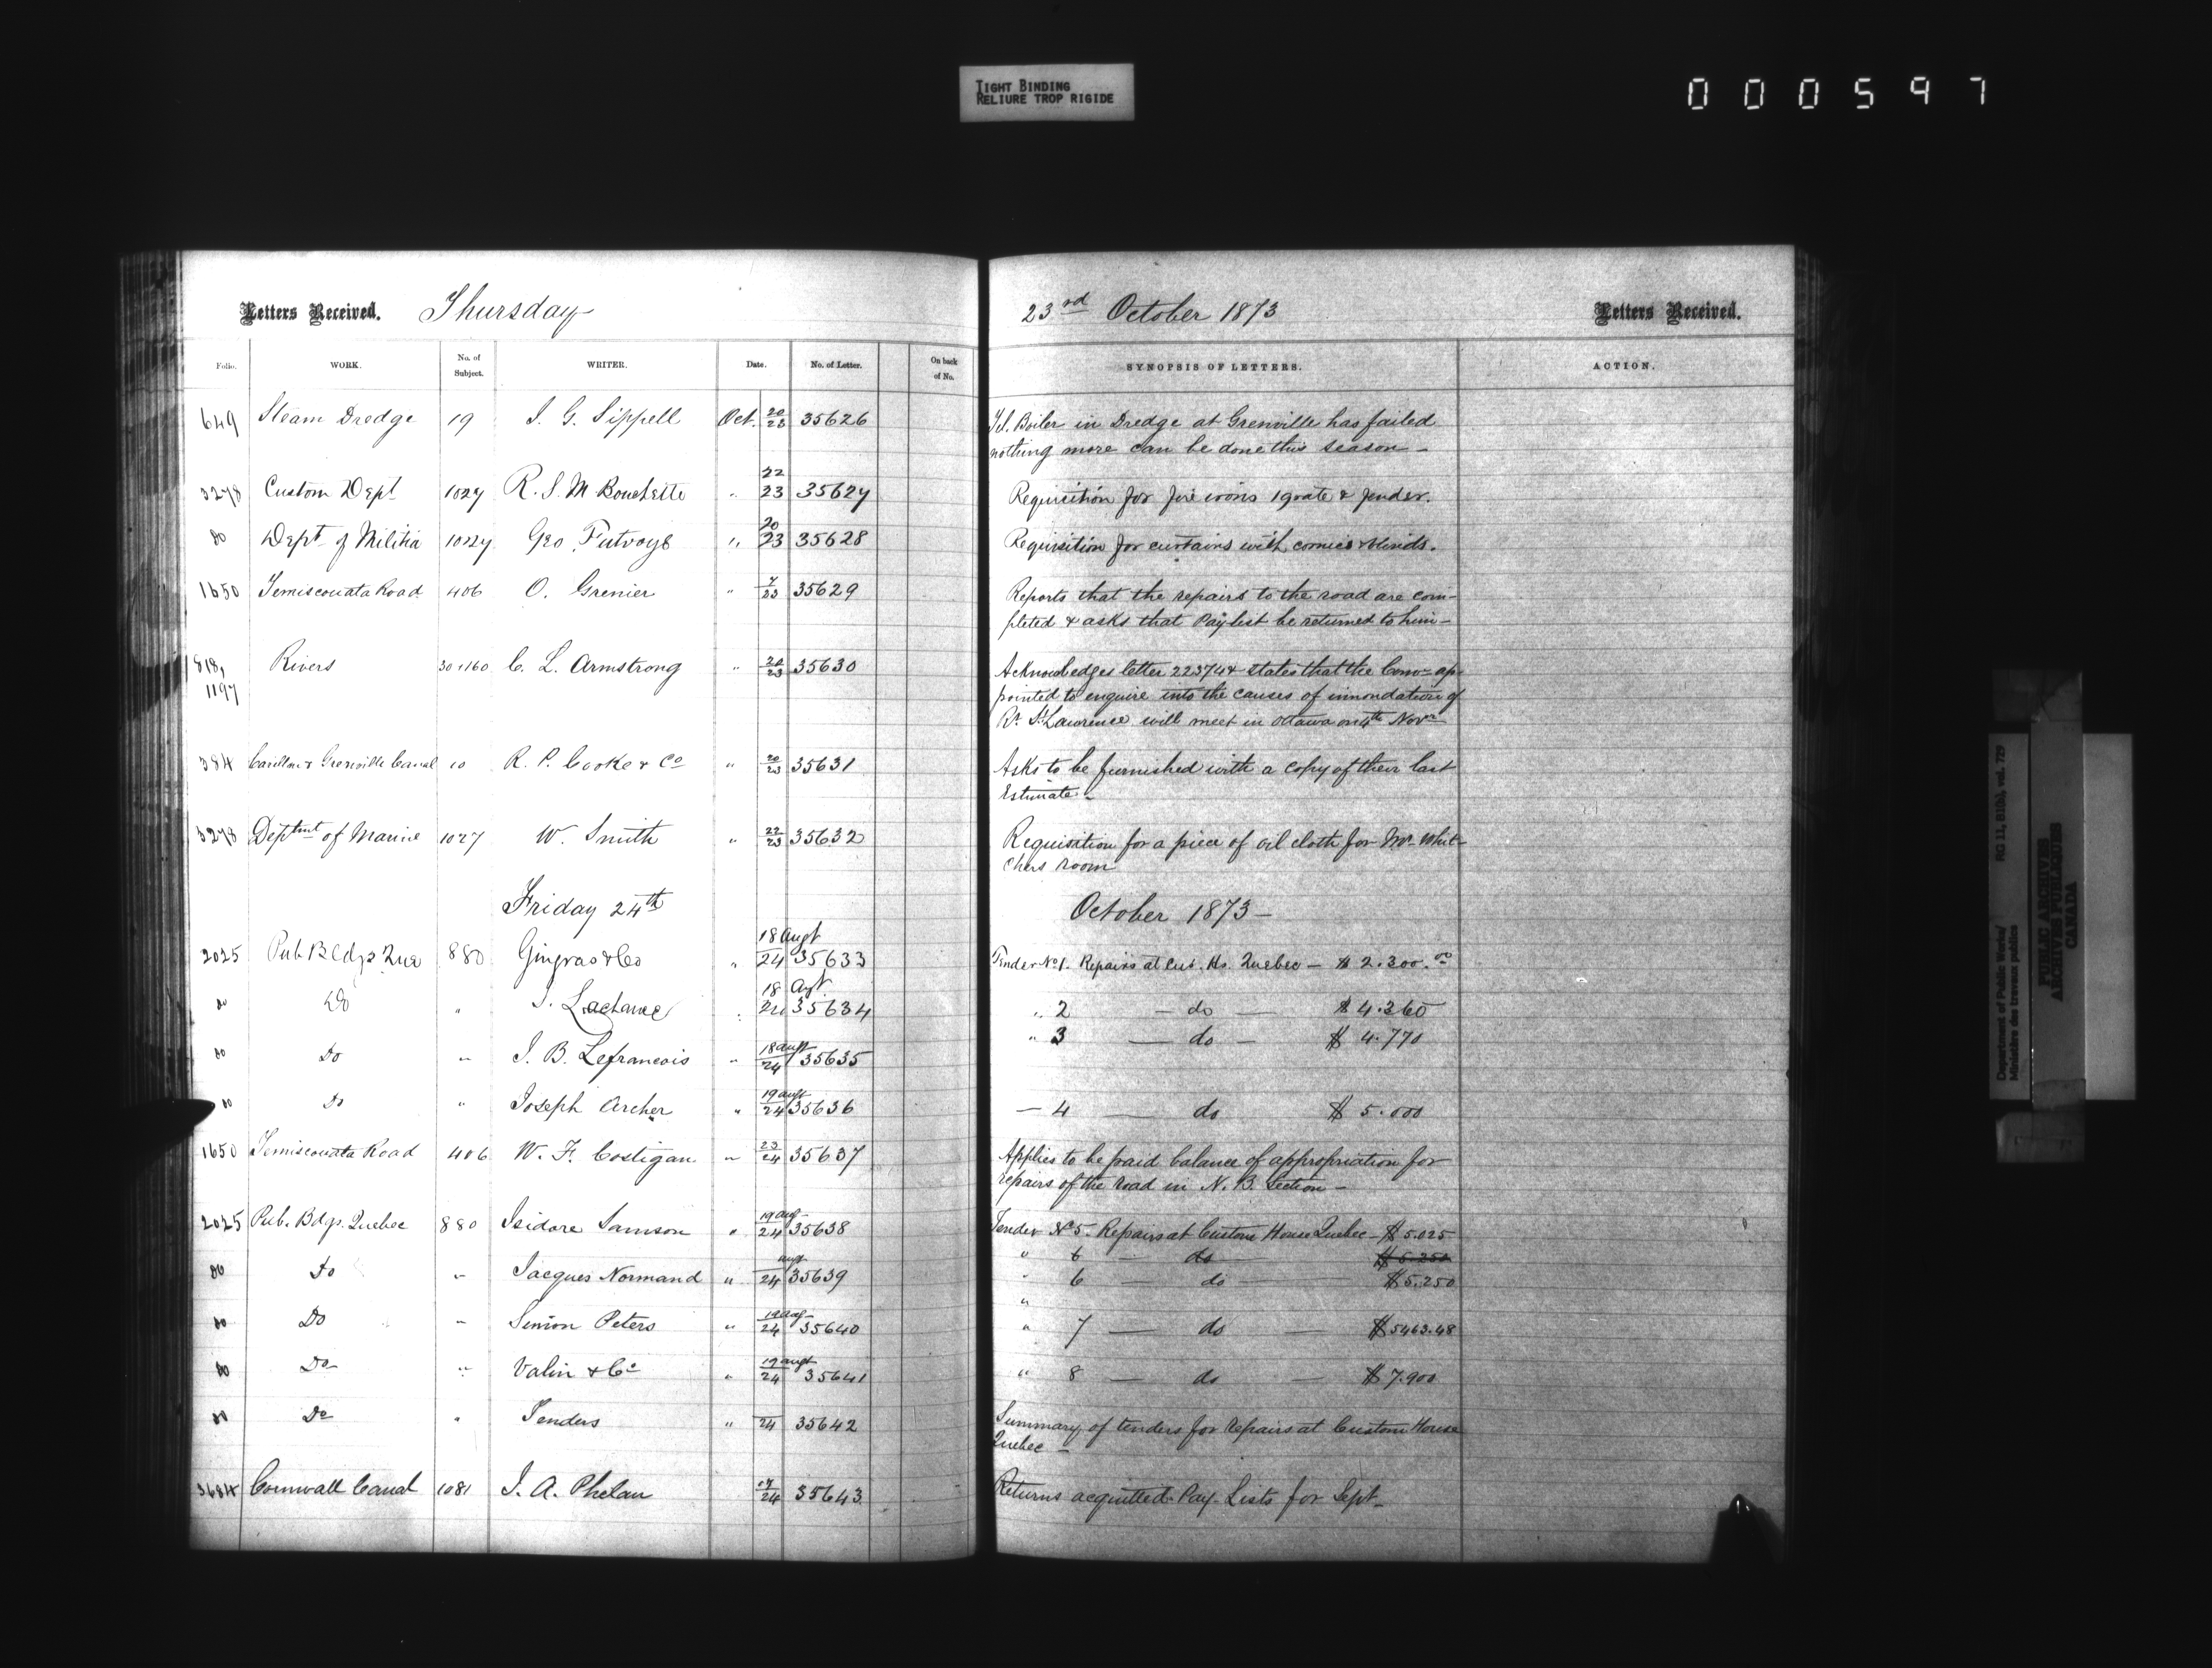 TIGHT BINDING
RELIURE TROP RIGIDE
000597
Letters Received. Thursday 23rd October 1873 Letters Received.
Folio. WORK. No. of Subject. WRITER. Date. No. of Letter. On back of No. SYNOPSIS OF LETTERS. ACTION.
649 Steam Dredge 19 J. G. Sippell Oct. 20/23 35626 Tel. Boiler in Dredge at Grenville has failed
nothing more can be done this season –
3278 Custom Dept 1027 R. S. M Bouchette " 22/23 35627 Requisition for fire irons 1 grate & fender.
do Dept of Militia 1027 Geo Futvoye " 20/23 35628 Requisition for curtains with cornice & blinds.
1650 Temiscouata Road 406 O. Grenier " 7/23 35629 Reports that the repairs to the road are com-
pleted & asks that Pay list be returned to him –
818, 1197 Rivers 30 & 160 C. L. Armstrong " 20/23 35630 Acknowledges letter 22374 & states that the Comn ap-
pointed to enquire into the causes of innondation of
Rr. St Lawrence will meet in Ottawa on 4th Novr
384 Carillon & Grenville Canal 10 R. P. Cooke & Co " 20/23 35631 Asks to be furnished with a copy of their last
Estimate –
3278 Deptmt of Marine 1027 W. Smith " 22/23 35632 Requisition for a piece of oil cloth for Mr. Whit-
chers room
Friday 24th October 1873 –
2025 Pub Bldgs Que 880 Gingras & Co " 18 Augt/24 35633 Tender No 1. Repairs at Cus. Hs. Quebec – $ 2.300.00
do Do " J. Lachance " 18 Agt/24 35634 " 2 – do – $ 4.360
do Do " J. B. Lefrancois " 18 augt/24 35635 " 3 – do – $ 4.770
do Do " Joseph Archer " 19 augt/24 35636 – 4 – do $ 5.000
1650 Temiscouata Road 406 W. F. Costigan " 23/24 35637 Applies to be paid balance of appropriation for
repairs of the road in N. B. Section –
2025 Pub. Bdgs. Quebec 880 Isidore Samson " 19 aug/24 35638 Tender No 5 – Repairs at Custom House Quebec – $ 5.025
" 6 – do $ 5.250
do Do " Jacques Normand " augt/24 35639 " 6 – do $ 5.250
"
do Do " Simon Peters " 19 aug/24 35640 " 7 – do – $ 5463.48
do Do " Valin & Co " 19 augt/24 35641 " 8 – do – $ 7.900
do Do " Tenders " 24 35642 Summary of tenders for repairs at Custom House
Quebec –
3684 Cornwall Canal 1081 J. A. Phelan 24 35643 Returns acquitted Pay-Lists for Sept –
Department of Public Works/
Ministère des travaux publics
RG 11, B1(b), vol. 729
PUBLIC ARCHIVES
ARCHIVES PUBLIQUES
CANADA